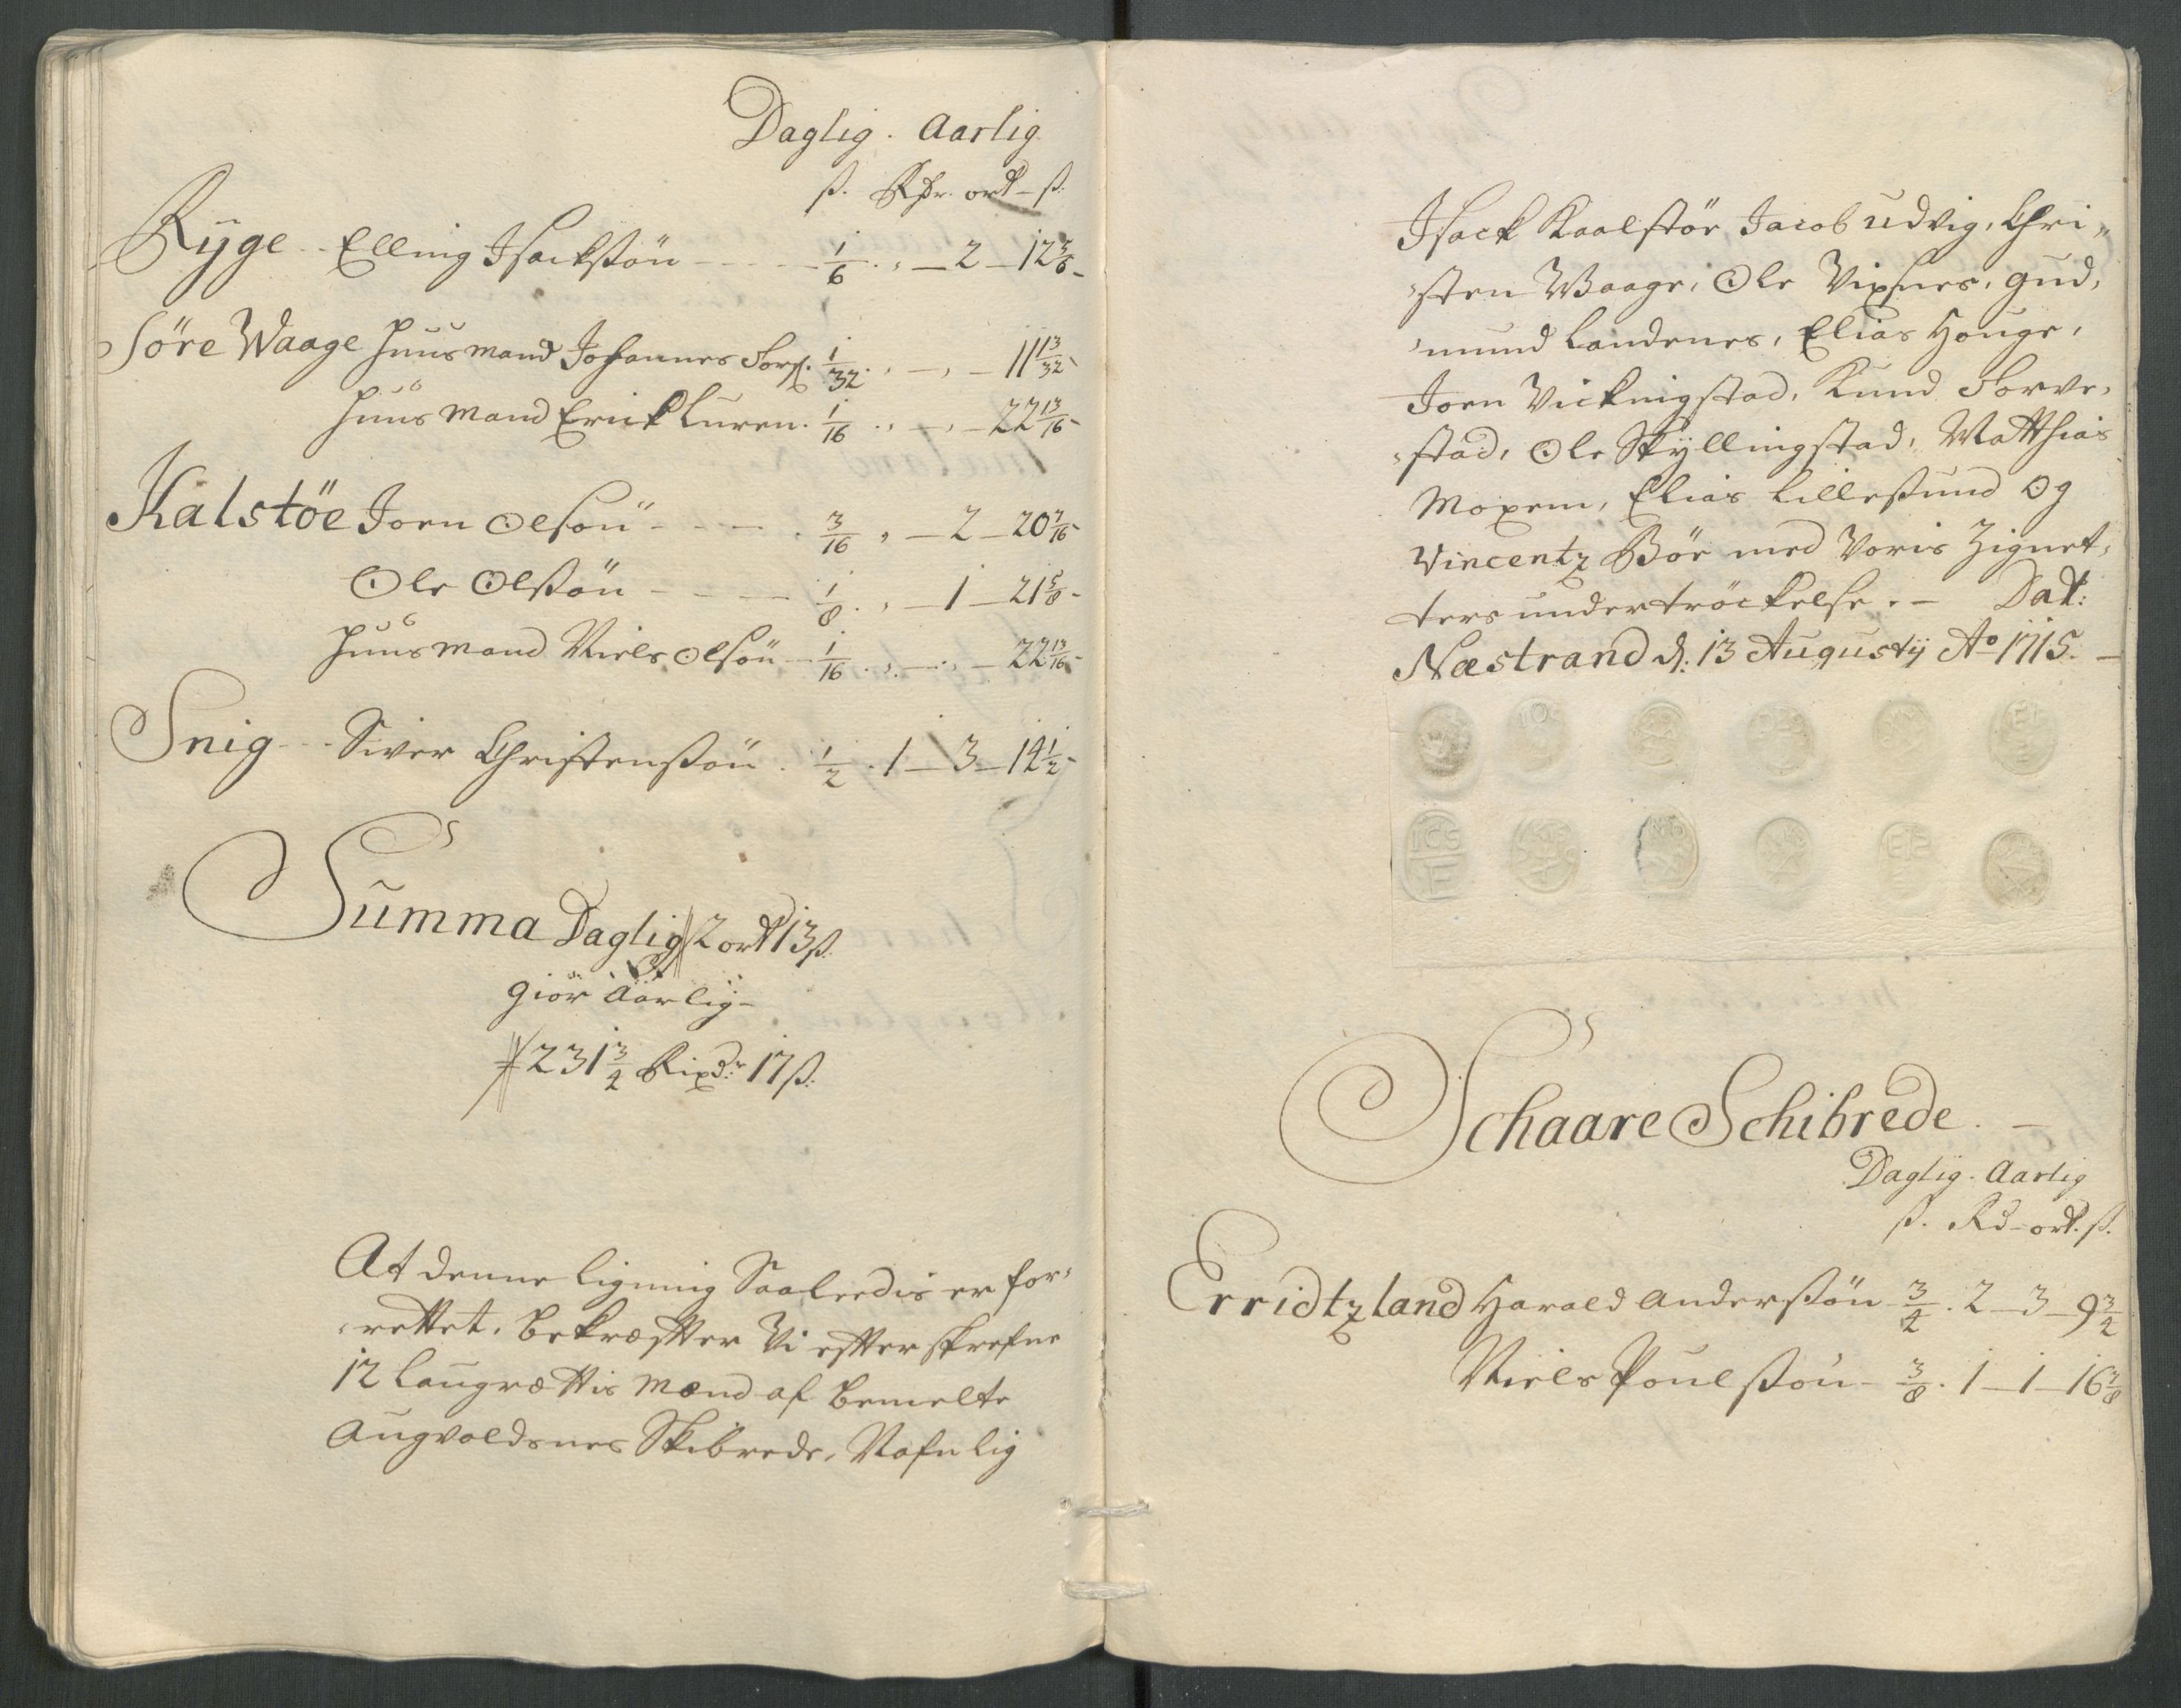 Daglig. Aarlig
ß. Rdr. ort – ß.
Ryge – Elling Isachsön – – – 1/6 . „ – 2 – 12 5/6 –
Söre Waage Huusmand Johannes 1/32 . „ – „ – 11 13/32 –
Huusmand Erich Luren . 1/16 . „ – „ – 22 13/16 –
Kalstöe Joen Olson – – – . 3/16 „ – 2 – 20 7/16 –
Ole Olssön – – – – 1/8 . „ – 1 – 21 5/8 –
Huusmand Niels Olsön – 1/16 . „ – „ – 22 13/16 –
Snig – – Siver Christenssön . 1/2 . 1 – 3 – 14 1/2 –
Summa Daglig 2 ort 13 ß.
giör Aarlig –
231 3/4 Rixdr. 17 ß.
At denne ligning Saaleedis er for-
rettet, bekræfter Vi efterskrefne
12 Laugrættis Mænd af bemelte
Augvoldsnes Skibrede, Nafnlig
Isack Kaalstöe, Jacob Udvig, Chri„
„sten Waage, Ole Vixsnes, Gud„
„mund Landenes, Elias Houge,
Joen Vickingstad, Knud Torve„
„stad, Ole Skyllingstad, Matthias
Moxem, Elias Lillesund og
Vincentz Böe med Voris Zignet„
ters undertröckelse. – Dat:
Næstrand d: 13 Augustij Ao 1715. –
Schaare Schibrede. –
Daglig. Aarlig
ß. Rd – ort. ß.
Erridtzland Harald Anderssön 3/4 . 2 – 3 – 9 3/4
Niels Poulssön – 3/8 . 1 – 1 – 16 7/8